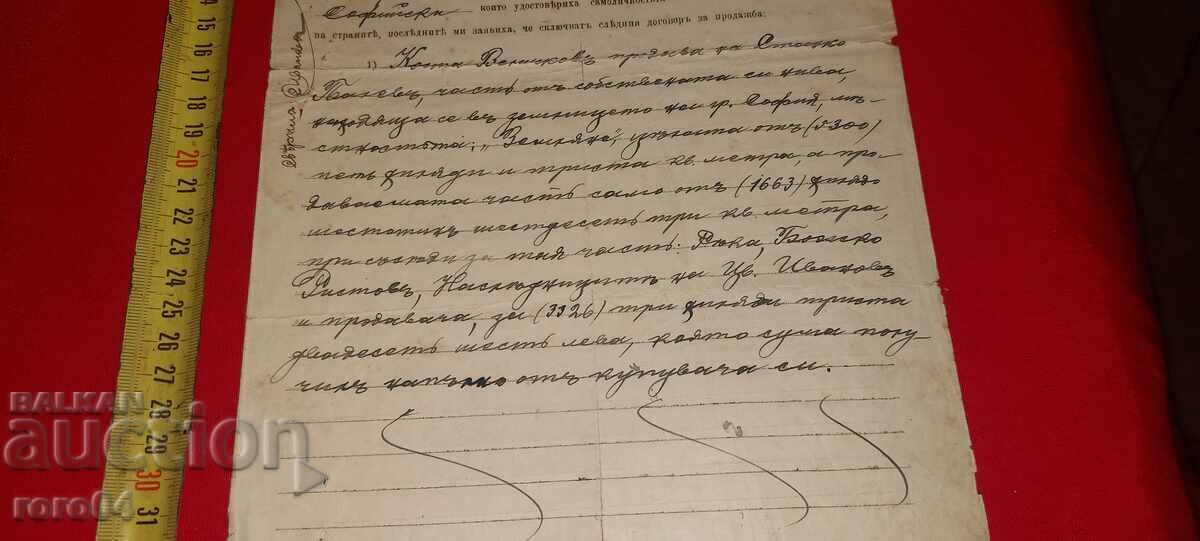 които удостовѣриха самоличностьта
Софийски
на страните, последните ми заявиха, че сключватъ следния договоръ за продажба:
1) Коста Величковъ продава на Стоенко
часть отъ собствената си нива,
находяща се въ землището на гр. София, мѣ-
стностьта: „ цѣлата отъ (5300)
петь хиляди и триста кв. метра, а про-
даваемата часть само отъ (1663) хиляда
шестстотинъ шестдесеть три кв. метра,
при съседи за тая часть: Рѣка,
Ристовъ, Наследницитѣ на Цв. Ивановъ
и продавача, за (3326) три хиляди триста
двадесеть шесть лева, която сума полу-
чихъ напълно отъ купувача си.
14
15
16
17
18
19
20
21
22
23
24
25
26
27
28
29
30
31
BALKAN
auction
roro64